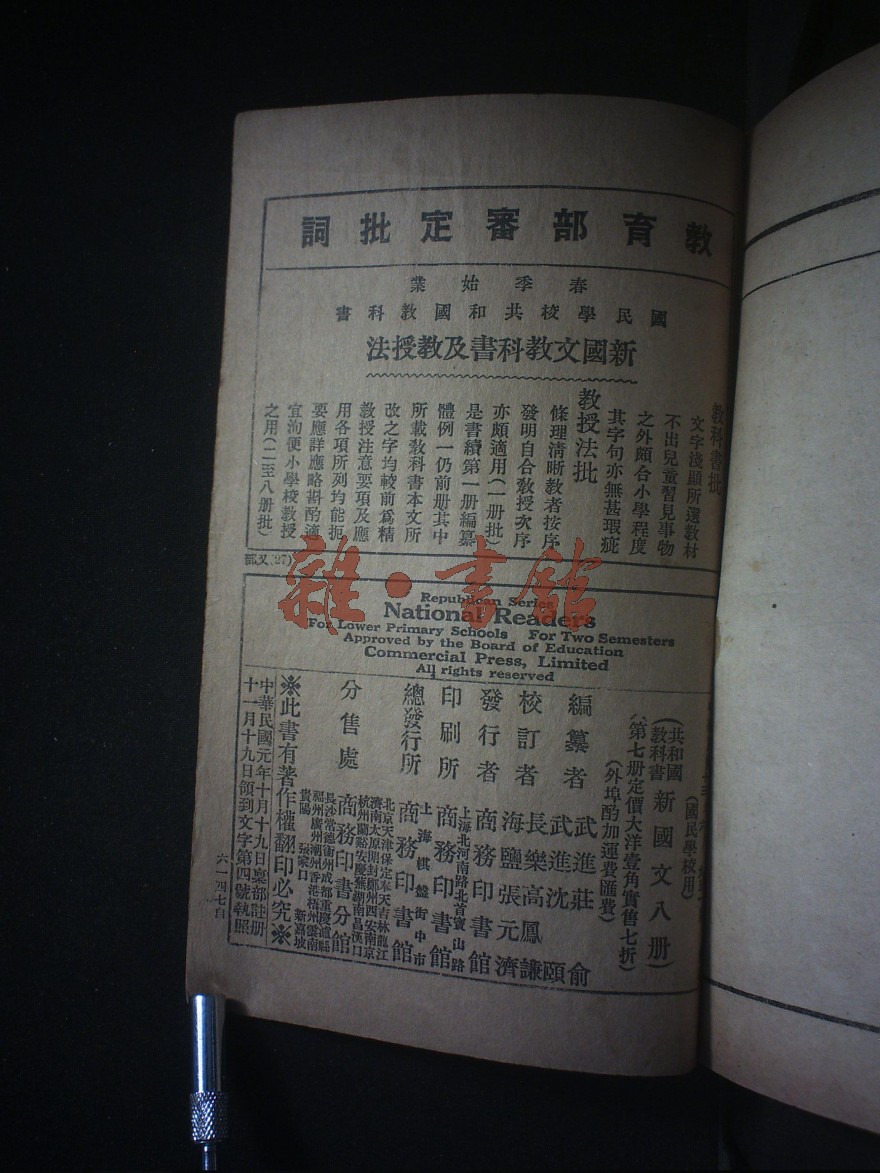 教育部審定批詞
春季始業
國民學校共和國教科書
新國文教科書及教授法
教科書批
文字淺顯所選教材
不出兒童習見事物
之外頗合小學程度
其字句亦無甚瑕疵
教授法批
條理淸晰教者按序
發明自合教授次序
亦頗適用(一册批)
是書續第一册編纂
體例一仍前册其中
所載教科書本文所
改之字均較前爲精
教授注意要項及應
用各項所列均能扼
要應詳應略斟酌適
宜洵便小學校教授
之用(二至八册批)
部又(27)
雜·書館
Republican Series
National Readers
For Lower Primary Schools For Two Semesters
Approved by the Board of Education
Commercial Press, Limited
All rights reserved
(國民學校用)
(共和國教科書新國文八册)
(第七册定價大洋壹角實售七折)
(外埠酌加運費匯費)
編纂者 武進莊俞
武進沈頤
校訂者 長樂高鳳謙
海鹽張元濟
發行者 商務印書館
印刷所 上海北河南路北首寶山路
商務印書館
總發行所 上海棋盤街中市
商務印書館
分售處 北京天津保定奉天吉林龍江
濟南太原開封鄭州西安南京
杭州蘭谿安慶蕪湖南昌漢口
商務印書分館
長沙常德衡州成都重慶瀘縣
福州廣州潮州香港梧州雲南
貴陽 張家口 新嘉坡
※此書有著作權翻印必究※
中華民國元年十月十九日稟部註册
十一月十九日領到文字第四號執照
六一四七自